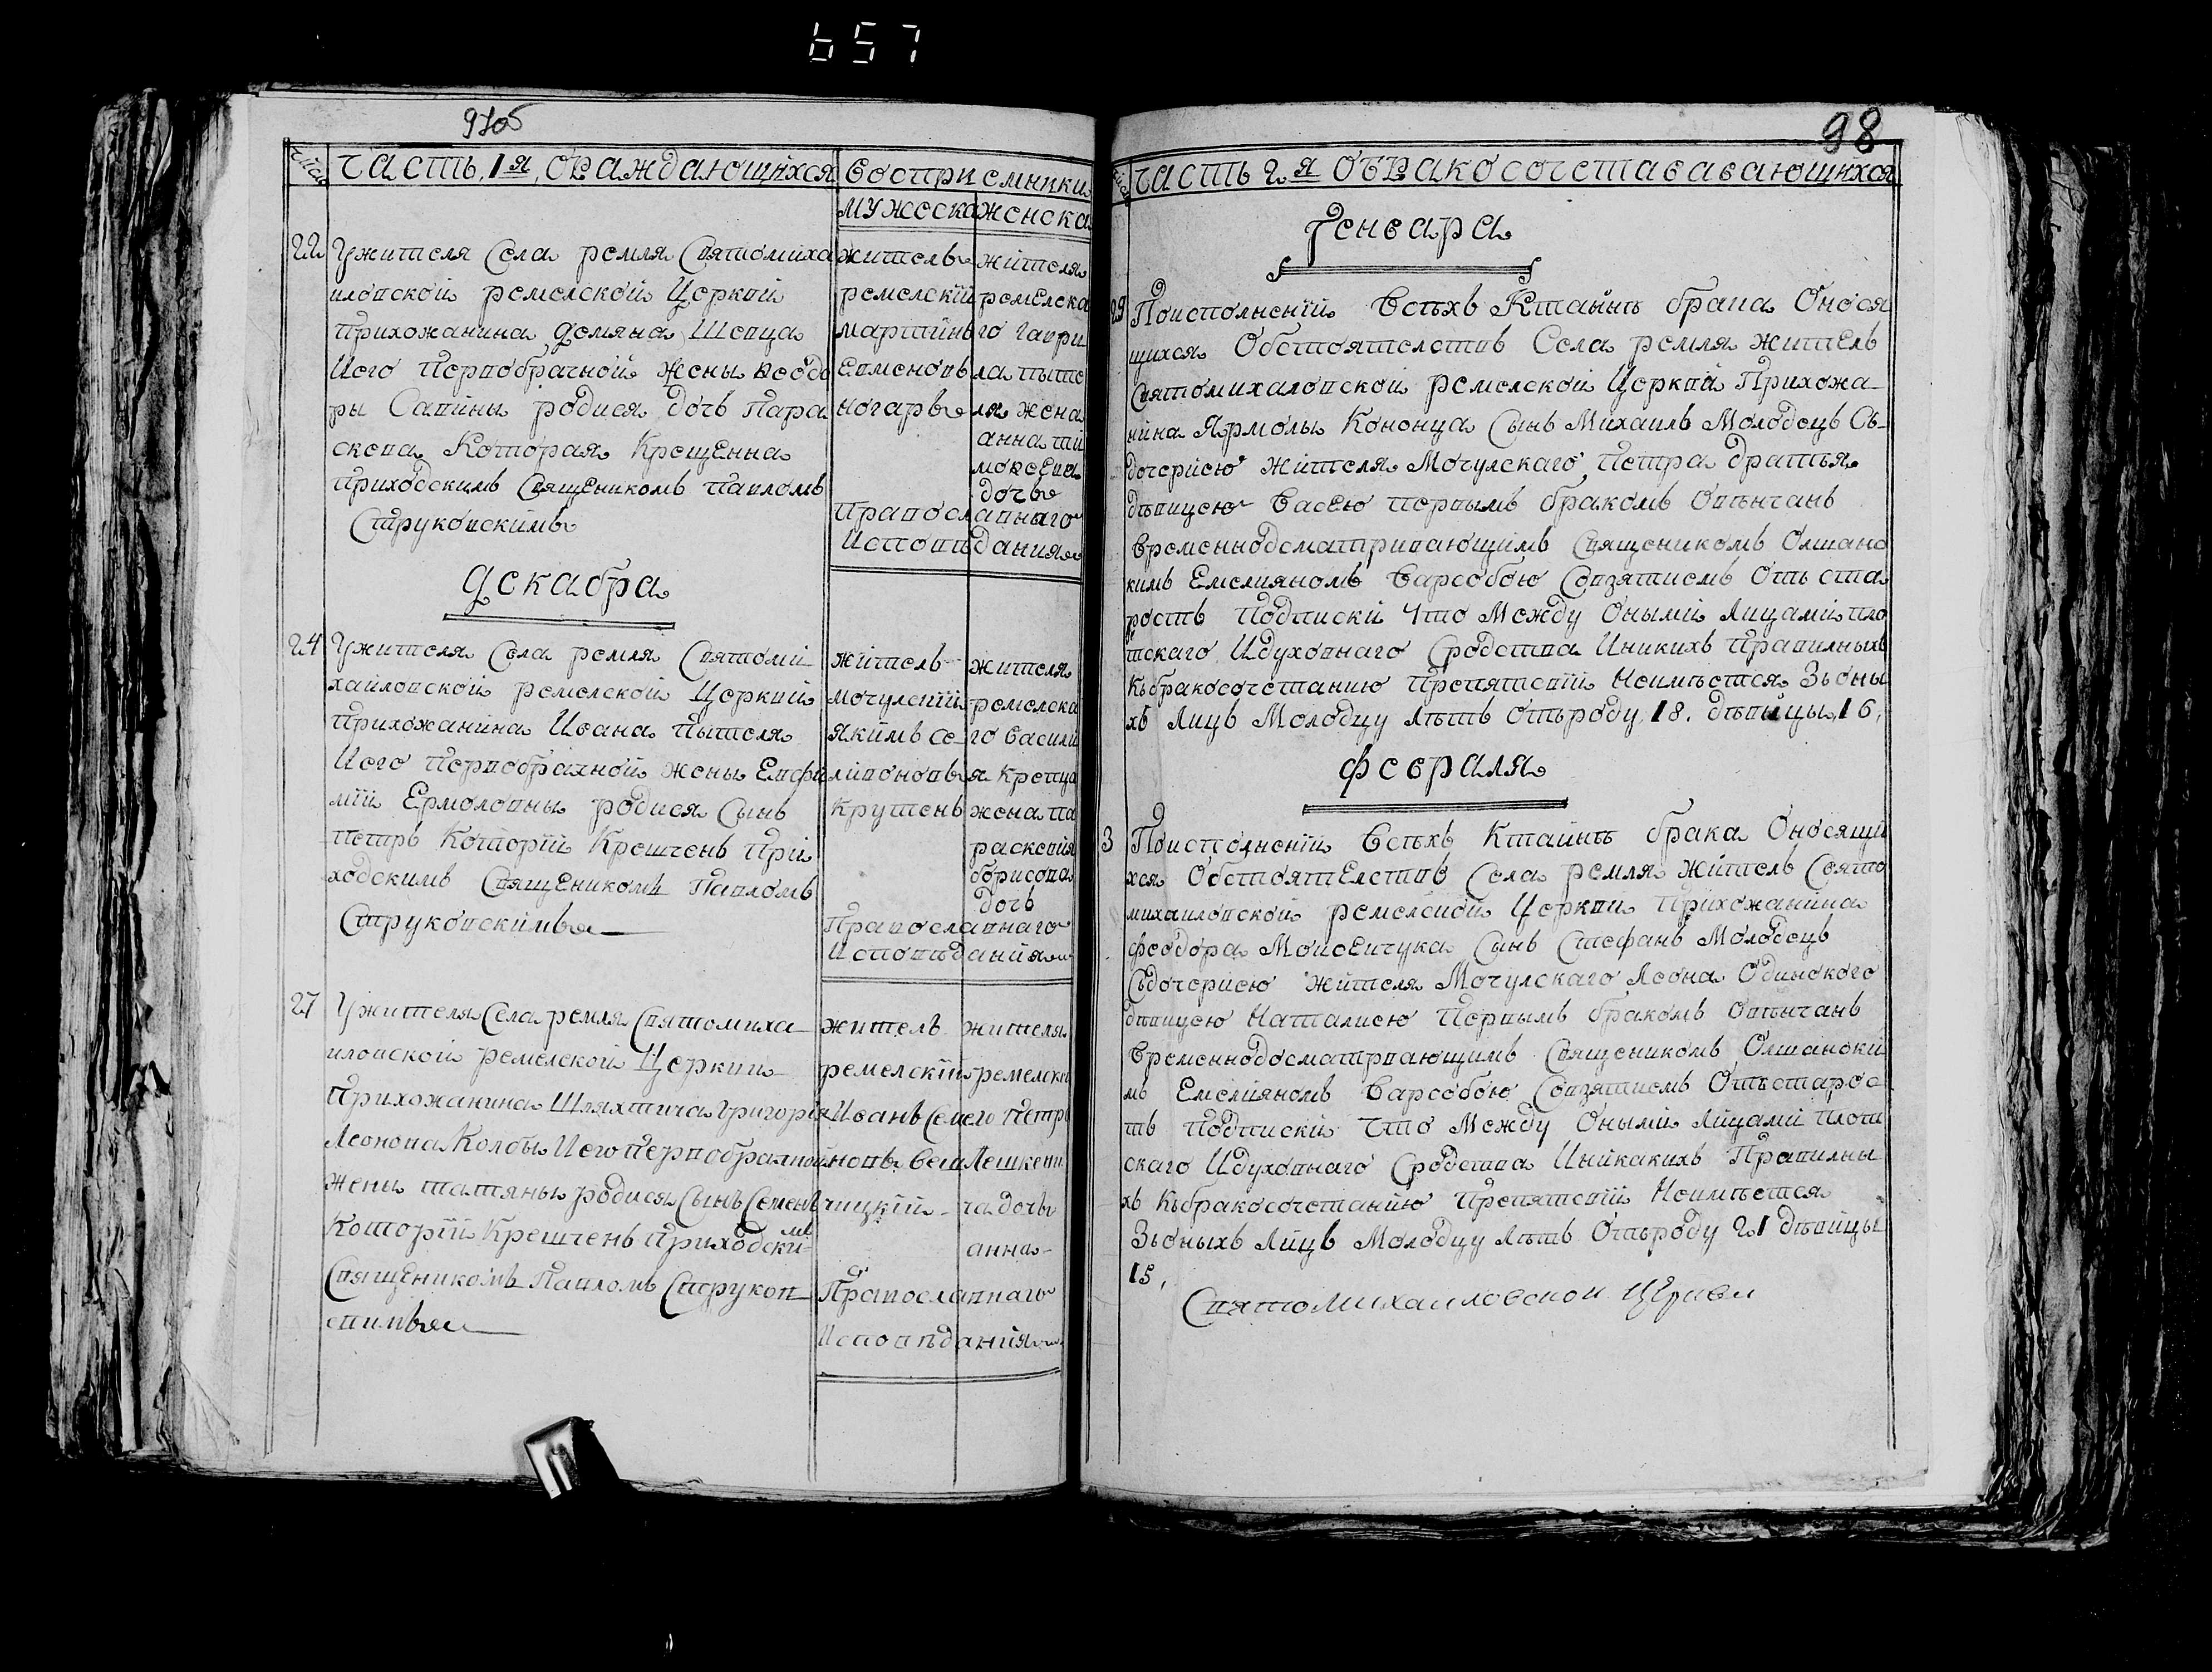 657
97об
числа
часть 1я, ораждающихся
восприемники
мужеска
женска
22
Ужителя Села ремля Святомиха
иловской ремелской Церквій
прихожанина Демяна Шевца
Иего первобрачной жены Феодо
ры Савины родися дочь Пара
скева Которая Крещенна
приходскимъ Священикомъ павломъ
Струковскимъ
житель
ремелскій
мартинъ
Семеновъ
ногаръ
жителя
ремелска
го гаври
ла пыте
ля жена
анна ти
мофеева
дочь
православнаго
Исповѣдания
Декабра
24
Ужителя Села ремля Святоми
хайловской ремелской Церквій
прихожанина Ивана пытеля
Иего первобрачной жены Евфи
мій Ермоловны родися Сынъ
петръ Которій Крешченъ при
ходскимъ Священикомъ Павломъ
Струковскимъ
житель
мочулскій
Якимъ се
ливоновъ
Крутень
жителя
ремелска
го васили
я кревца
жена па
раскевія
борисова
дочь
Православнаго
Исповѣданія
27
Ужителя Села ремля Святомиха
иловской ремелской Церквии
Прихожанина Шляхтича григорія
Леонова Колбы Иего первобрачной
жены татяны родися Сынъ Семенъ
Которій Крешченъ приходски
мъ
Священикомъ Павломъ Струков
скимъ
житель
ремелскій
Иванъ Семе
новъ
чицкій
жителя
ремелска
го петра
Лешкеви
ча дочь
анна
Православнаго
Исповѣданія
98
числа
часть 2я обракосочетававающихся
Генвара
29
Поисполненій Всѣхъ Ктаинѣ брака Онося
щихся Обстоятелствъ Села ремля житель
Святомихаловской ремелской Церквій Прихожа
нина Ярмолы Кононца Сынъ Михаилъ Молодецъ Съ
дочерисю жителя Мочулскаго петра братъя
дѣвицею Васею первымъ бракомъ Овѣнчанъ
Временнодсматривающимъ Священикомъ Олшанс
кимъ Емелияномъ Варсобою Совзятиемъ Отъ ста
ростъ подписки Что Между Оными Лицами пло
тскаго Идуховнаго Сродства Иникихъ правилныхъ
Кьбракосочетанию препятсвій Неимѣется Зьоны
хъ Лицъ Молодцу лѣтъ отьроду 18. дѣвицы 16,
Февраля
3
Поисполненій Всѣхъ Ктайнѣ брака Оносящи
хся Обстоятелствъ Села ремля Житель Свято
михаиловской ремелской Церкви прихожанина
Феодора Моисеичука Сынъ Стефанъ Молодецъ
Сдочерисю жителя Мочулскаго Леона Одинокого
дѣвицею Наталиею первымъ бракомъ Овѣнчанъ
Временнодосматрвающимъ Священикомъ Олшански
мъ Емелияномъ Варсобою Совзятиемъ Отьстарос
тъ подписки что Между Оными Лицами плот
скаго Идуховнаго Сродства Иникакихъ Правилны
хъ Кьбракосочетанию препятсвій Неимѣется
Зьоныхъ Лицъ Молодцу лѣтъ Отьроду 21 дѣвицы
15,
Святомихаиловской Церкви